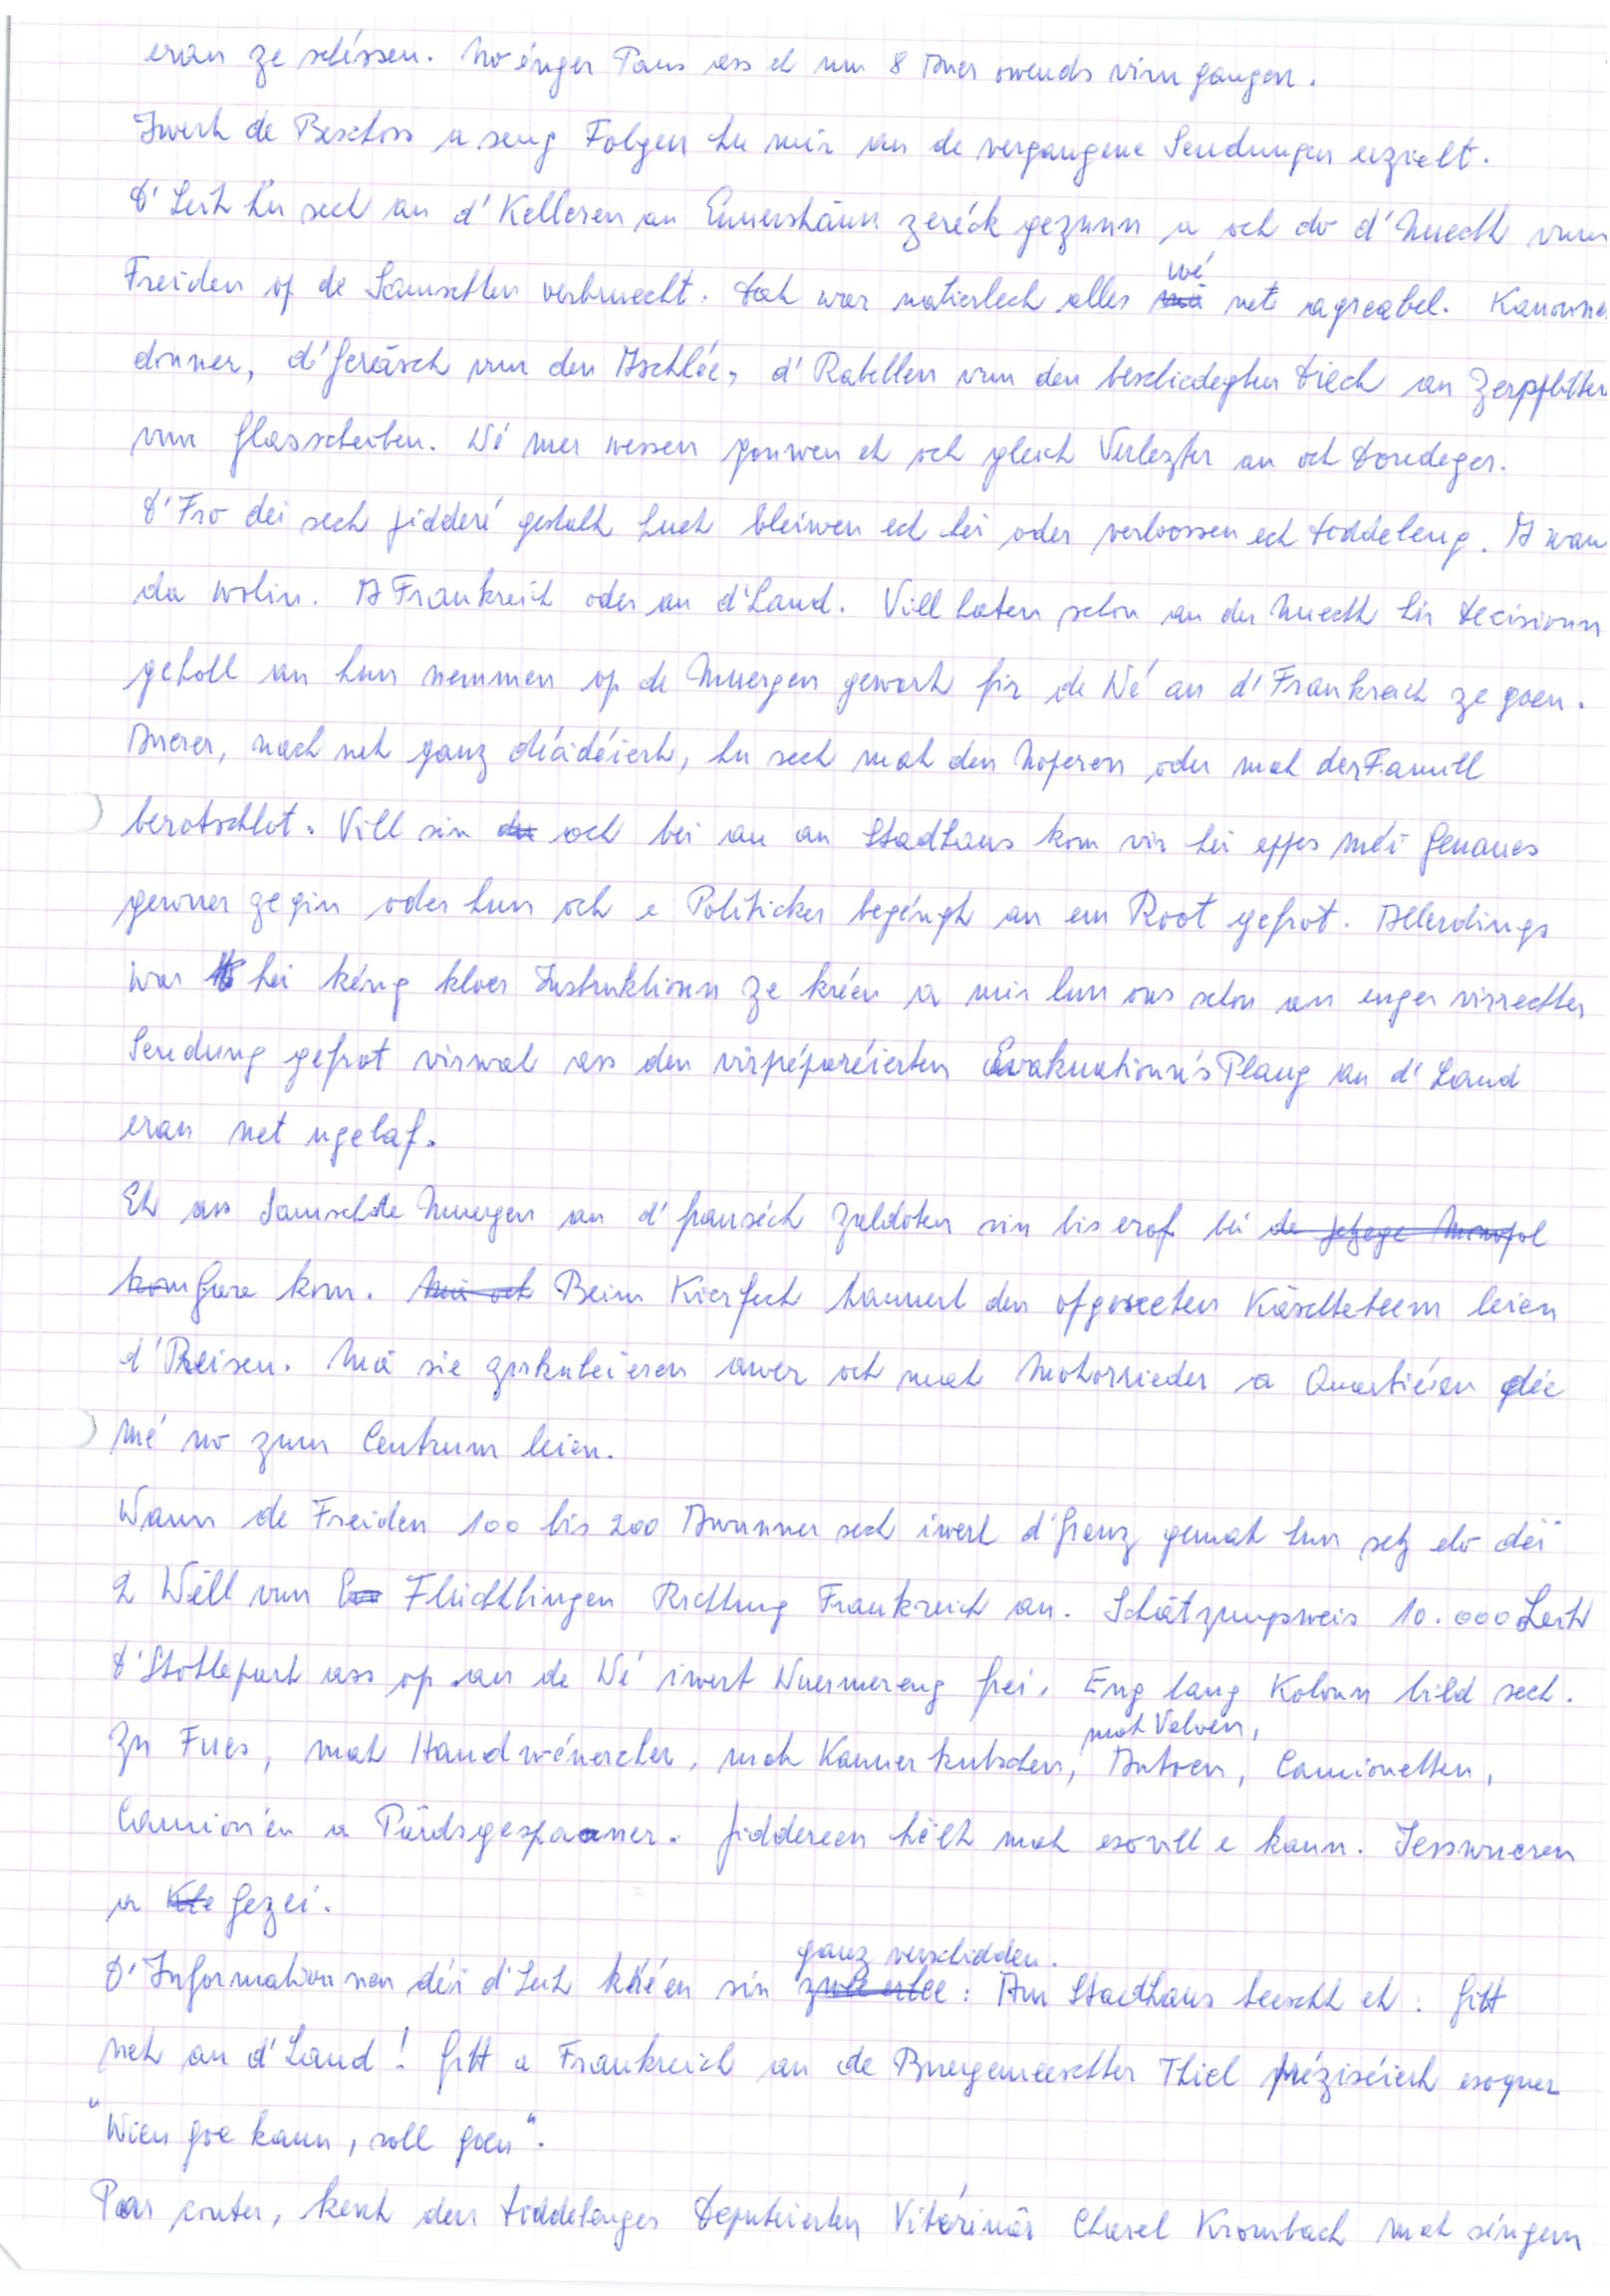 eran ze schéssen. No énger Paus ass et um 8 Auer owends virun gaangen.
Iwert de Beschoss a seng Folgen hu mir an de vergangene Sendungen erzielt.
D'Leit hu sech an d'Kelleren an Ennershänn zeréck gezunn a och do d'Nuecht vum
Freiden op de Samschten verbruecht. Dat war natierlech alles wé net agreabel. Kanounen
donner, d'Geräisch vun den Aschléi, d'Rabellen vun den beschiedegten Diech an Zerpflitteren
vun Glasscheiben. Wé mer wessen gouwen et och gleich Verlezter an och Doudeger.
D'Fro dei sech jidderé gestalt huet bleiwen ech hei oder verloossen ech Diddeleng. A wann
da wohin. A Frankreich oder an d'Land. Vill haten schon an der Nuecht hir Decisioun
geholl an hun nemmen op de Muergen gewart fir de Wé an d'Frankreich ze goen.
Anerer, nach net ganz décidéiert, hu sech mat den Noperen oder mat der Famill
berotschlot. Vill sin och bei an an Stadhaus kom vir hei eppes méi Genaues
gewuer ze gin oder hun och e Politicker begéngt an em Root gefrot. Allerdings
war hei kéng kloer Instruktioun ze kréen a mir hun ons schon an enger virrechter
Sendung gefrot virwat ass den virpréparéierten Evakuatioun's Plang an d'Land
eran net ugelaf.
Et ass Samschde Muergen an d'franséch Zaldoten sin bis erof bei de jetzege Monopol
kom Gare kom. Mä och Beim Kierfech hannert den opgeseeten Käschteteem leien
d'Preisen. Mä sie zirkuleieren awer och mat Motorrieder a Quartiéen déi
mé no zum Centrum leien.
Wann de Freiden 100 bis 200 Awunner sech iwert d'Grenz gemat hun setz elo déi
2 Well vun Flüchtlingen Richtung Frankreich an. Schätzungsweis 10.000 Leit
D'Stotlepart ass op an de Wé iwert Wuermereng frei. Eng lang Kolonn bild sech.
Zu Fues, mat Handwénercher, mat Kannerkutschen, mat Veloen, Autoen, Camionetten,
Camionén a Pärdsgespaaner. Jiddereen hëllt mat esovill e kann. Iesswueren
a Gezei.
D'Informatiounen déi d'Leit kréen sin ganz verschidden. zweerlee: Am Stadhaus heescht et: Gitt
net an d'Land! Gitt a Frankreich an de Buergemeeschter Thiel préziséiert esoguer
"Wien goe kann, soll goen".
Par conter, kennt den Diddelenger Deputéierten Vitérinär Charel Krombach mat séngem